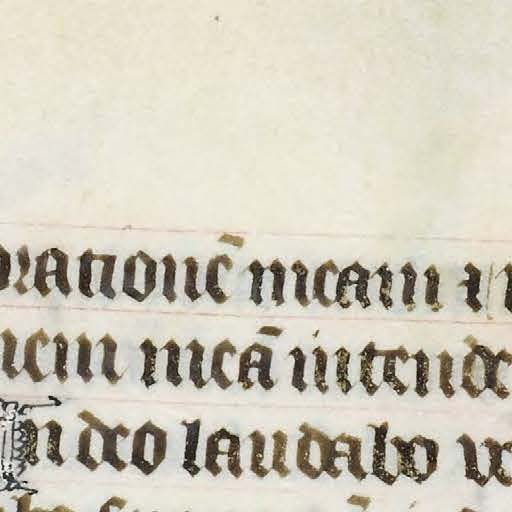 orationē meam i
nem meā intende
In deo laudabo v